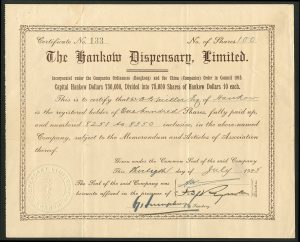 Certificate No. 133
No. of Shares 100
The Hankow Dispensary, Limited.
Incorporated under the Companies Ordinances (Hongkong) and the China (Companies) Order in Council 1915
Capital Hankow Dollars 750,000, Divided into 75,000 Shares of Hankow Dollars 10 each.
This is to certify that Miller Esq of Hankow
is the registered holder of One hundred Shares, fully paid up,
and numbered 8251 to 8350 inclusive in the above-named
Company, subject to the Memorandum and Articles of Association
thereof.
Given under the Common Seal of the said Company
This Thirtieth day of July
The Seal of the said Company was
hereunto affixed in the presence of